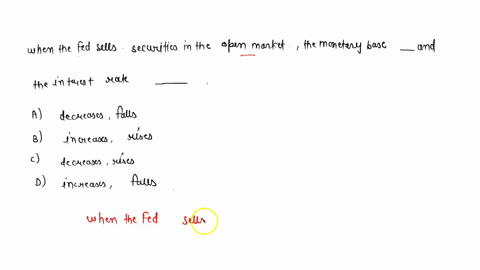 when the fed sells securities in the open market, the monetary base __ and
the interest rate ____ .
A) decreases, falls
B) increases, rises
C) decreases, rises
D) increases, falls
when the Fed sells